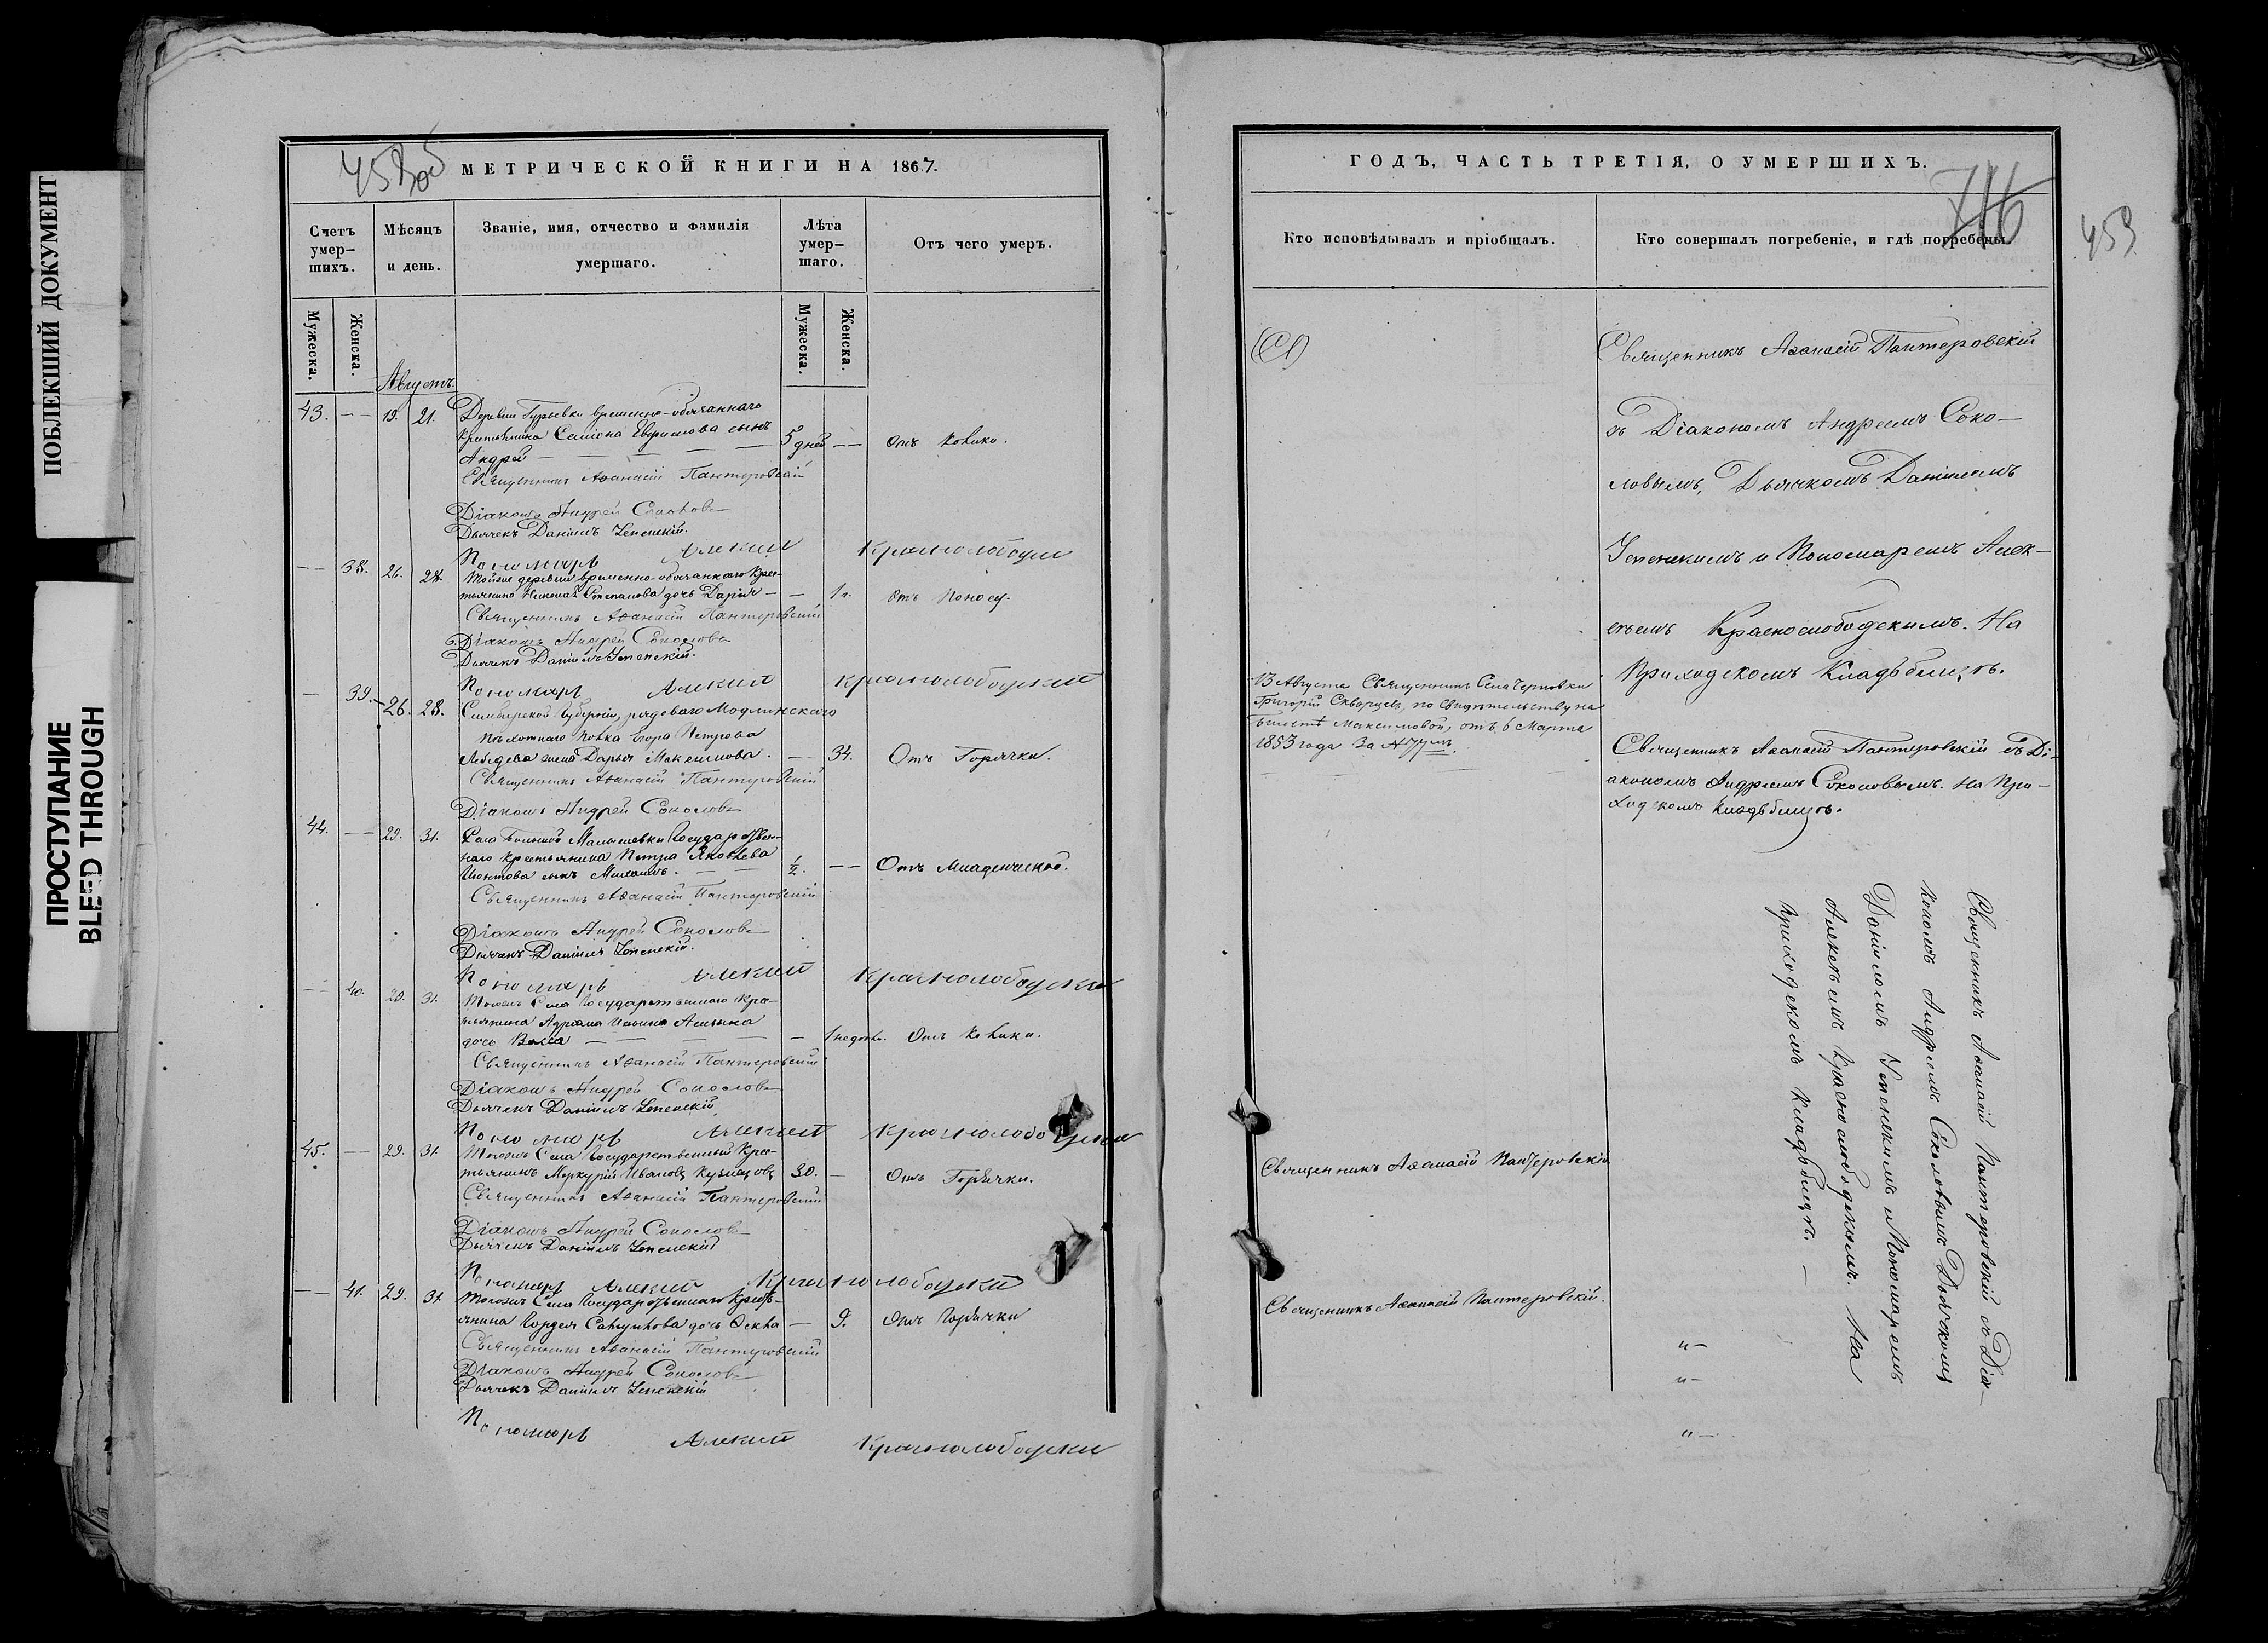 ПОБЛЕКШИЙ ДОКУМЕНТ
ПРОСТУПАНИЕ
BLEED THROUGH
458об
МЕТРИЧЕСКОЙ КНИГИ НА 1867.
Счетъ умер-шихъ.
Мѣсяцъ и день.
Званіе, имя, отчество и фамилія умершаго.
Лѣта умер-шаго.
Отъ чего умеръ.
Мужеска.
Женска.
Мужеска.
Женска.
Августъ.
43. — 19. 21. Деревни Гурьевки временно-обязаннаго
крестьянина Семiона Евфимова сынъ
Андрей 5 дней — Отъ Колики.
Священникъ Аѳанасій Пантеровскій
Діаконъ Андрей Соколовъ
Дьячекъ Даніилъ Успенскій.
Пономарь Алексий Краснослободский
— 38. 26. 28. Тойже деревни временно-обязаннаго крес-
тьянина Николая Степанова дочь Дарья — 1 г. Отъ Поносу.
Священникъ Аѳанасій Пантеровскій
Діаконъ Андрей Соколовъ
Дьячекъ Даніилъ Успенскій.
Пономарь Алексий Краснослободский
— 39. 26. 28. Симбирской Губерніи, рядоваго Модлинскаго
Пѣхотнаго Полка Егора Петрова
Лебедева жена Дарья Максимова. — 34. Отъ Горячки.
Священникъ Аѳанасій Пантеровскій
Діаконъ Андрей Соколовъ
44. — 29. 31. Села Большой Малышевки Государствен-
наго крестьянина Петра Яковлева
сынъ ½. — Отъ Младенческой.
Священникъ Аѳанасій Пантеровскій
Діаконъ Андрей Соколовъ
Дьячекъ Даніилъ Успенскій.
Пономарь Алексий Краснослободский
— 40. 29. 31. Тогожъ Села Государственнаго Кре-
стьянина Адріана Ильина
дочь Васса — 1 недѣль. Отъ Колики.
Священникъ Аѳанасій Пантеровскій
Діаконъ Андрей Соколовъ
Дьячекъ Даніилъ Успенскій
Пономарь Алексий Краснослободский
45. — 29. 31. Тогожъ Села Государственный Крес-
тьянинъ Меркурій Ивановъ Кузнецовъ 30. — Отъ Горячки.
Священникъ Аѳанасій Пантеровскій
Діаконъ Андрей Соколовъ
Дьячекъ Даніилъ Успенскій
Пономарь Алексий Краснослободский
— 41. 29. 31. Тогожъ Села Государственнаго Крестъ-
янина Гордея дочь Ѳекла — 9. Отъ Горячки
Священникъ Аѳанасій Пантеровскій
Діаконъ Андрей Соколовъ
Дьячекъ Даніилъ Успенскій
Пономарь Алексий Краснослободский
ГОДЪ, ЧАСТЬ ТРЕТІЯ, О УМЕРШИХЪ.
716
459
Кто исповѣдывалъ и пріобщалъ.
Кто совершалъ погребеніе, и гдѣ погребены.
Священникъ Аѳанасій Пантеровскій
съ Діакономъ Андреемъ Соко-
ловымъ, Дьячкомъ Даніиломъ
Успенскимъ и Пономаремъ Алек-
сѣемъ Краснослободскимъ. На
Приходскомъ Кладббищѣ.
13 Августа Священникъ Села Черновки
Григорій Скворцовъ, по свидѣтельству на
билетѣ Максимовой, отъ 6 Марта
1853 года За № 77мъ.
Священникъ Аѳанасій Пантеровскій съ Ді-
акономъ Андреемъ Соколовымъ. На При-
ходскомъ Кладбищѣ.
Священникъ Аѳанасій Пантеровскій съ Діа-
кономъ Андреемъ Соколовымъ Дьячкомъ
Даніиломъ Успенскимъ и Пономаремъ
Алексѣемъ Краснослободскимъ. На
приходскомъ Кладбищѣ. —
Священникъ Аѳанасій Пантеровскій
Священникъ Аѳанасій Пантеровскій.
„ —
„ —
„ —